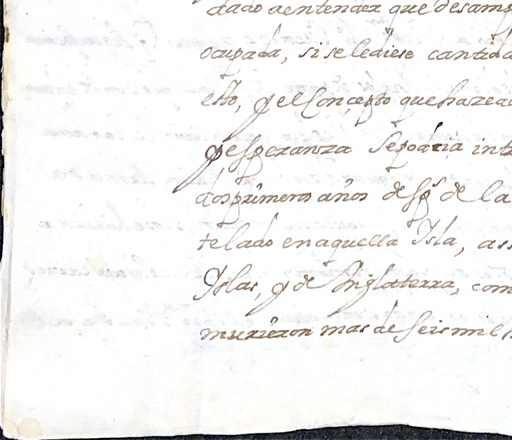 dado aentender que desamp
ocupada, si se lediese cantida
esto, y el Conçepto que haze
y esperanza Se podria int
dos primeros años desps de la
telado en aquella Isla, as
Yslas, y de Inglaterra, com
murieron mas de seis mil